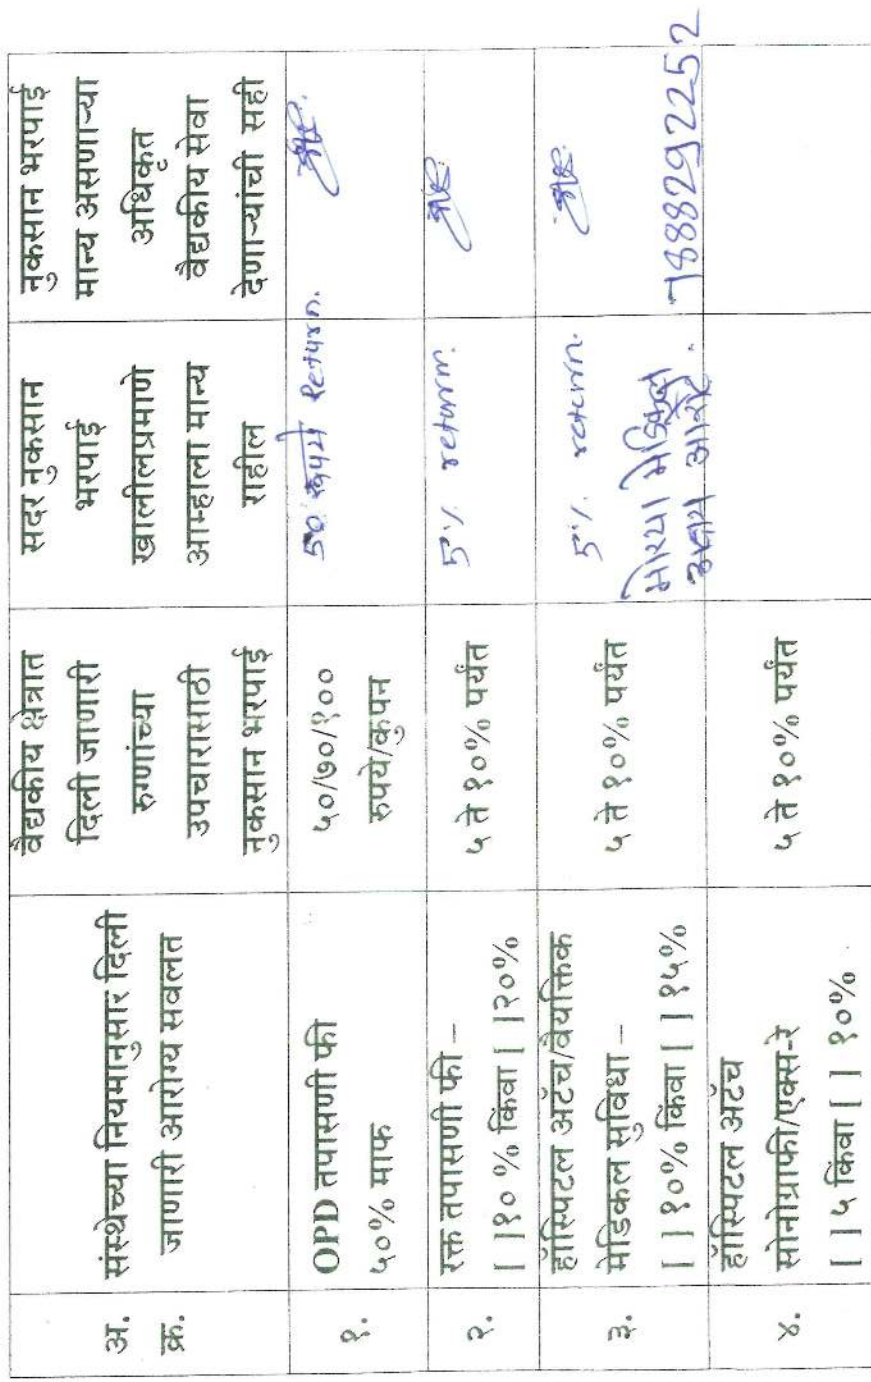 अ.
क्र.
संस्थेच्या नियमानुसार दिली
जाणारी आरोग्य सवलत
वैद्यकीय क्षेत्रात
दिली जाणारी
रुग्णांच्या
उपचारासाठी
नुकसान भरपाई
सदर नुकसान
भरपाई
खालीलप्रमाणे
आम्हाला मान्य
राहील
नुकसान भरपाई
मान्य असणाऱ्या
अधिकृत
वैद्यकीय सेवा
देणाऱ्यांची सही
१.
OPD तपासणी फी
५०% माफ
५०/७०/१००
रुपये/कुपन
50 रुपये Return.
२.
रक्त तपासणी फी –
[ ]१० % किंवा [ ]२०%
५ ते १०% पर्यंत
5% return.
३.
हॉस्पिटल अटॅच/वैयक्तिक
मेडिकल सुविधा –
[ ] १०% किंवा [ ] १५%
५ ते १०% पर्यंत
5% return.
मोरया मेडिकल
7888292252
४.
हॉस्पिटल अटॅच
सोनोग्राफी/एक्स-रे
[ ] ५ किंवा [ ] १०%
५ ते १०% पर्यंत